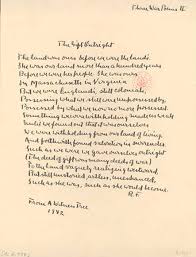 Three War Poems II
The Gift Outright
The land was ours before we were the land's.
She was our land more than a hundred years
Before we were her people. She was ours
In Massachusetts in Virginia
But we were England's, still colonials,
Possessing what we still were unpossessed by,
Possessed by what we now no more possessed.
Something we were withholding made us weak
Until we found out that it was ourselves
We were withholding from our land of living
And forthwith found salvation in surrender.
Such as we were we gave ourselves outright
(The deed of gift was many deeds of war)
To the land vaguely realizing westward
But still unstoried, artless, unenhanced,
Such as she was, such as she would become.
R.F.
From A Witness Tree
1942